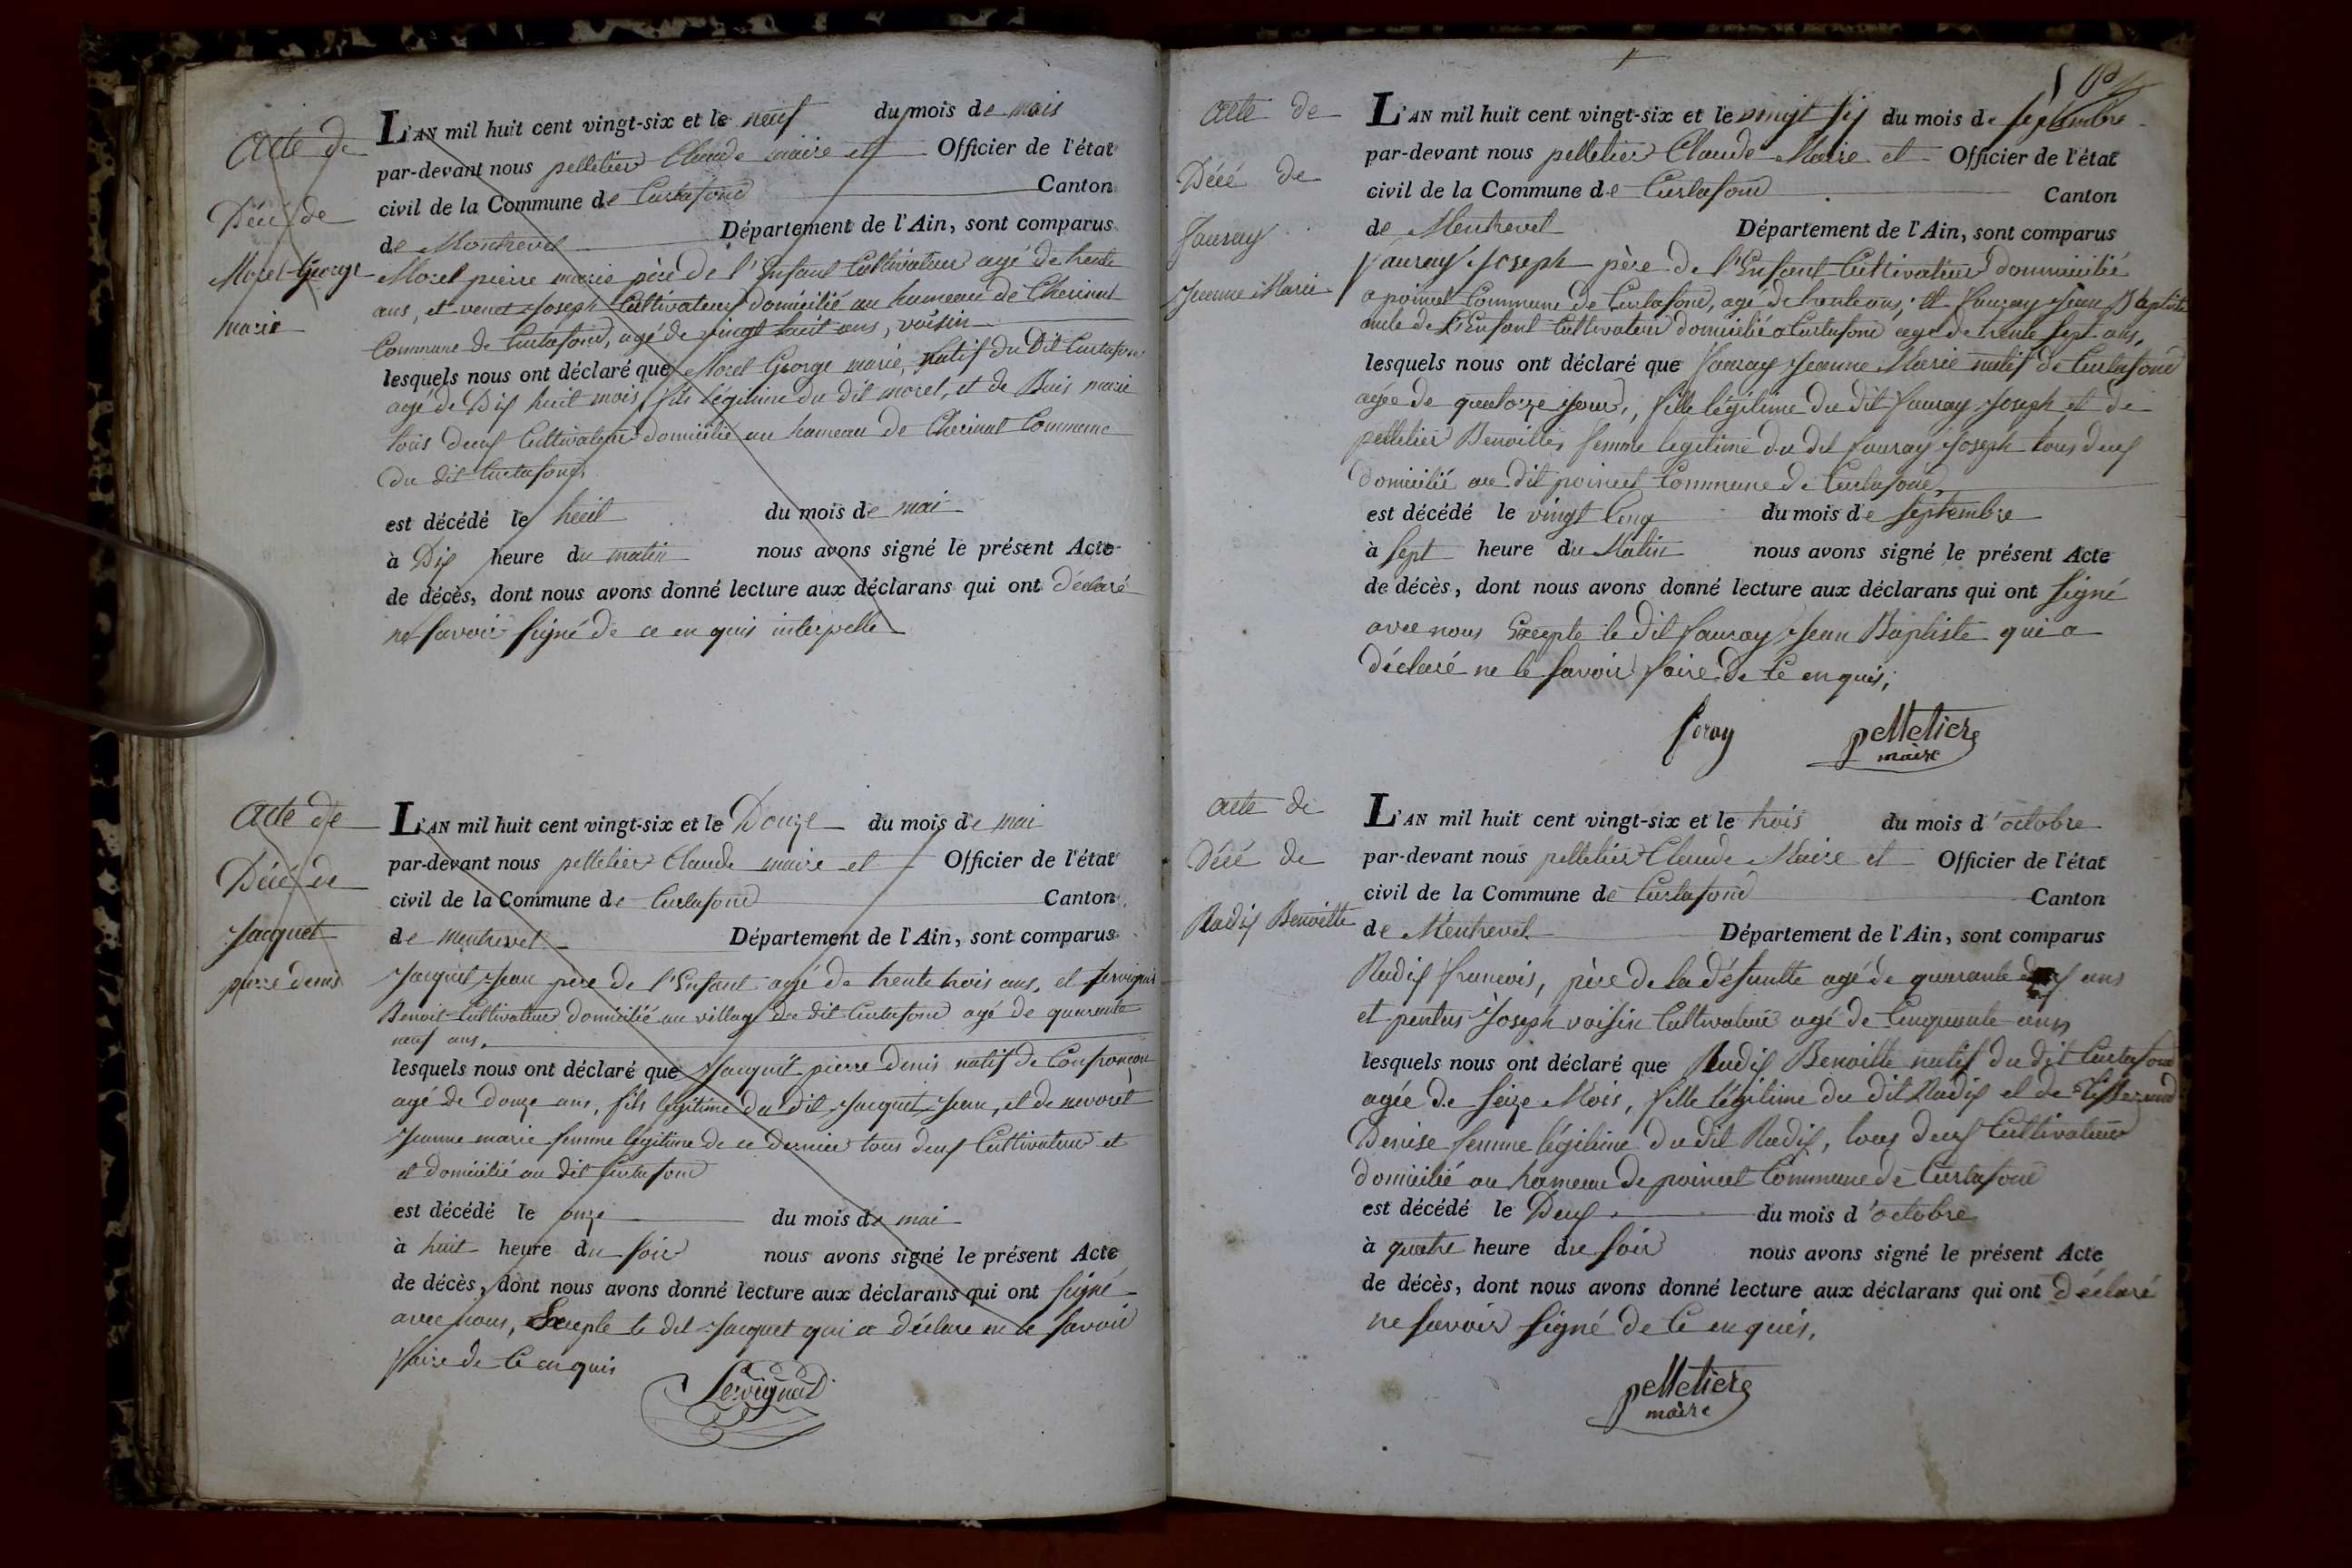 Acte de
Décé de
Morel George
marie
L'AN mil huit cent vingt-six et le neuf du mois de mais
par-devant nous pelletier Claude maire et Officier de l'état
civil de la Commune de Curtafond Canton
de Montrevel Département de l'Ain, sont comparus
Morel pierre marie père de l'Enfant Cultivateur agé de trente
ans, et venet Joseph Cultivateur domicilié au hameau de Cherinat
Commune de Curtafond, agé de vingt huit ans, voisin
lesquels nous ont déclaré que Morel George marie, natif du Dit Curtafond
agé de Dix huit mois, fils légitime du dit morel, et de Buis marie
tous deux Cultivateur domicilié au hameau de Cherinat Commune
du dit Curtafond
est décédé le huit du mois de mai
à Dix heure du matin nous avons signé le présent Acte
de décès, dont nous avons donné lecture aux déclarans qui ont déclaré
ne savoir signé de ce en quis interpellé
Acte de
Décé de
Jacquet
pierre denis
L'AN mil huit cent vingt-six et le Douze du mois de mai
par-devant nous pelletier Claude maire et Officier de l'état
civil de la Commune de Curtafond Canton
de Montrevel Département de l'Ain, sont comparus
Jacquet Jean père de l'Enfant agé de trente trois ans, et Servignat
Benoit Cultivateur domicilié au village du dit Curtafond agé de quarante
neuf ans,
lesquels nous ont déclaré que Jacquet pierre denis natif de Confrançon
agé de douze ans, fils légitime du dit Jacquet Jean, et de nevoret
Jeanne marie femme légitime de ce dernier tous deux Cultivateur et
et domicilié au dit Curtafond
est décédé le onze du mois de mai
à huit heure du soir nous avons signé le présent Acte
de décès, dont nous avons donné lecture aux déclarans qui ont signé
avec nous, Excepte le dit Jacquet qui a déclaré ne le savoir
faire de Ce en quis
Servignat
Acte de
Décé de
fauray
Jeanne Marie
L'AN mil huit cent vingt-six et le vingt six du mois de septembre
par-devant nous pelletier Claude Maire et Officier de l'état
civil de la Commune de Curtafond Canton
de Montrevel Département de l'Ain, sont comparus
fauray Joseph père de l'Enfant Cultivateur dommicilié
a poincet Commune de Curtafond, agé de trente ans; et fauray Jean Baptiste
oncle de l'Enfant Cultivateur domicilié a Curtafond agé de trente sept ans,
lesquels nous ont déclaré que fauray Jeanne Marie natif de Curtafond
agée de quatorze jour, fille légitime du dit fauray Joseph et de
pelletier Benoitte, femme legitime du dit fauray Joseph tous deux
domicilié au dit poincet Commune de Curtafond,
est décédé le vingt Cinq du mois de septembre
à sept heure du Matin nous avons signé le présent Acte
de décès, dont nous avons donné lecture aux déclarans qui ont signé
avec nous Excepte le dit fauray Jean Baptiste qui a
déclaré ne le savoir faire de Ce en quis;
foray pelletier
maire
acte de
Décé de
Radix Benoitte
L'AN mil huit cent vingt-six et le trois du mois d'octobre
par-devant nous pelletier Claude Maire et Officier de l'état
civil de la Commune de Curtafond Canton
de Montrevel Département de l'Ain, sont comparus
Radix francois, père de la défuntte agé de quarante deux ans
et pentus Joseph voisin Cultivateur agé de Cinquante ans
lesquels nous ont déclaré que Radix Benoitte natif du dit Curtafond
agée de seize Mois, fille légitime du dit Radix et de Tisserand
Denise femme légitime du dit Radix, tous deux Cultivateur
domicilié au hameau de poincet Commune de Curtafond
est décédé le Deux du mois d'octobre
à quatre heure du soir nous avons signé le présent Acte
de décès, dont nous avons donné lecture aux déclarans qui ont déclaré
ne savoir signé de Ce en quis,
pelletier
maire